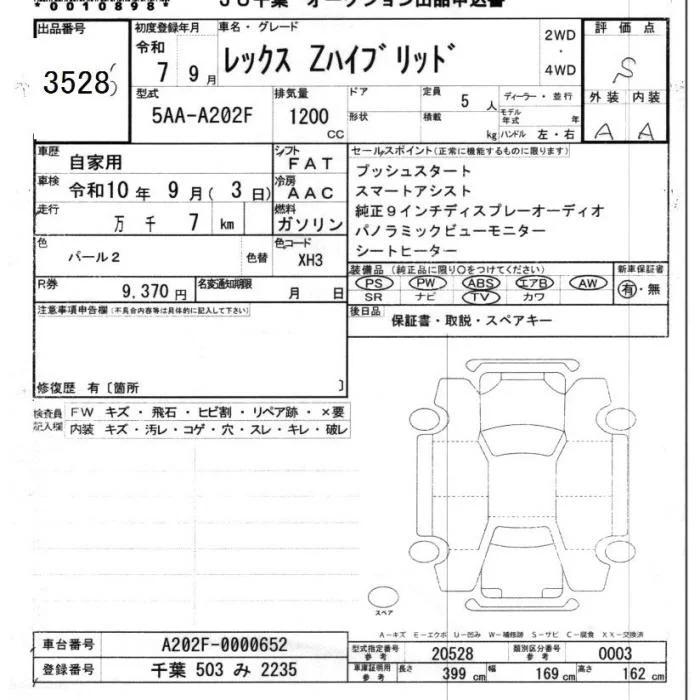 *00108984*
JU千葉 オークション出品申込書
出品番号
3528
初度登録年月
令和
7 9月
車名・グレード
レックス Zハイブリッド
2WD
・
4WD
評価点
S
外装 内装
A A
型式
5AA-A202F
排気量
1200
CC
ドア
定員
5人
形状
積載
kg
ディーラー・並行
モデル年式 年
ハンドル 左・右
車歴
自家用
シフト
FAT
車検
令和10年 9月( 3日)
冷房
AAC
走行
万 千 7 km
燃料
ガソリン
色
パール2
色替
色コード
XH3
R券
9,370円
名変通知期限
月 日
セールスポイント(正常に機能するものに限ります)
プッシュスタート
スマートアシスト
純正9インチディスプレーオーディオ
パノラミックビューモニター
シートヒーター
装備品(純正品に限り○をつけてください)
新車保証書
PS PW ABS エアB AW
有・無
SR ナビ TV カワ
後日品
保証書・取説・スペアキー
注意事項申告欄(不具合内容等は具体的に記入して下さい)
修復歴 有〔箇所 〕
検査員記入欄
FW キズ・飛石・ヒビ割・リペア跡・×要
内装 キズ・汚レ・コゲ・穴・スレ・キレ・破レ
スペア
A-キズ E-エクボ U-凹み W-補修跡 S-サビ C-腐食 XX-交換済
車台番号
A202F-0000652
登録番号
千葉 503 み 2235
型式指定番号
参考
20528
類別区分番号
参考
0003
車庫証明用
参考
長さ 399 cm
幅 169 cm
高さ 162 cm